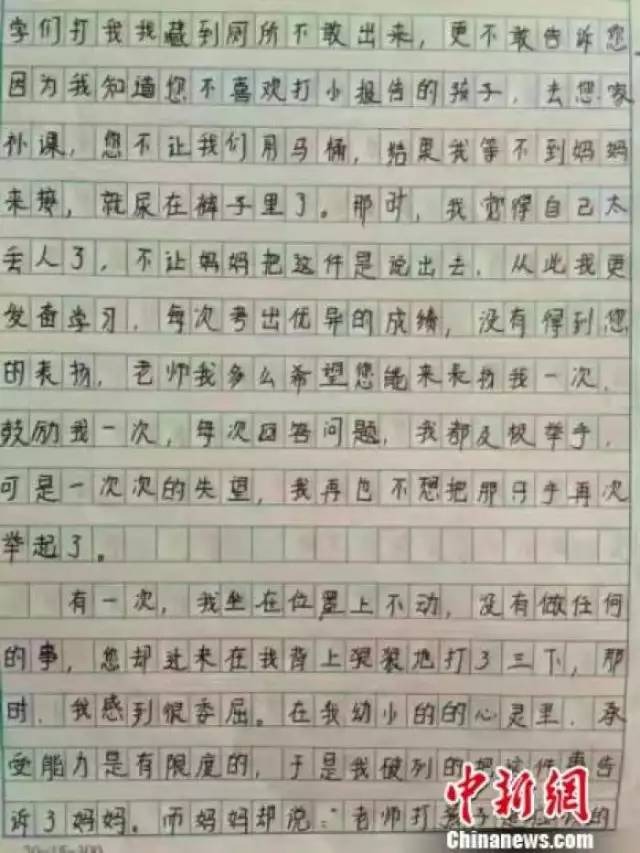 学们打我我藏到厕所不敢出来，更不敢告诉您
因为我知道您不喜欢打小报告的孩子，去您家
补课，您不让我们用马桶，结果我等不到妈妈
来接，就尿在裤子里了。那时，我觉得自己太
丢人了，不让妈妈把这件是说出去，从此我更
发奋学习，每次考出优异的成绩，没有得到您
的表扬，老师我多么希望您能来表扬我一次，
鼓励我一次，每次回答问题，我都及极举手，
可是一次次的失望，我再也不想把那只手再次
举起了。
有一次，我坐在位置上不动，没有做任何
的事，您却过来在我背上狠狠地打了三下，那
时，我感到很委屈。在我幼小的的心灵里，承
受能力是有限度的，于是我破列的把这件事告
诉了妈妈。而妈妈却说："老师打孩子是 的
20×15=300
中新网
Chinanews.com